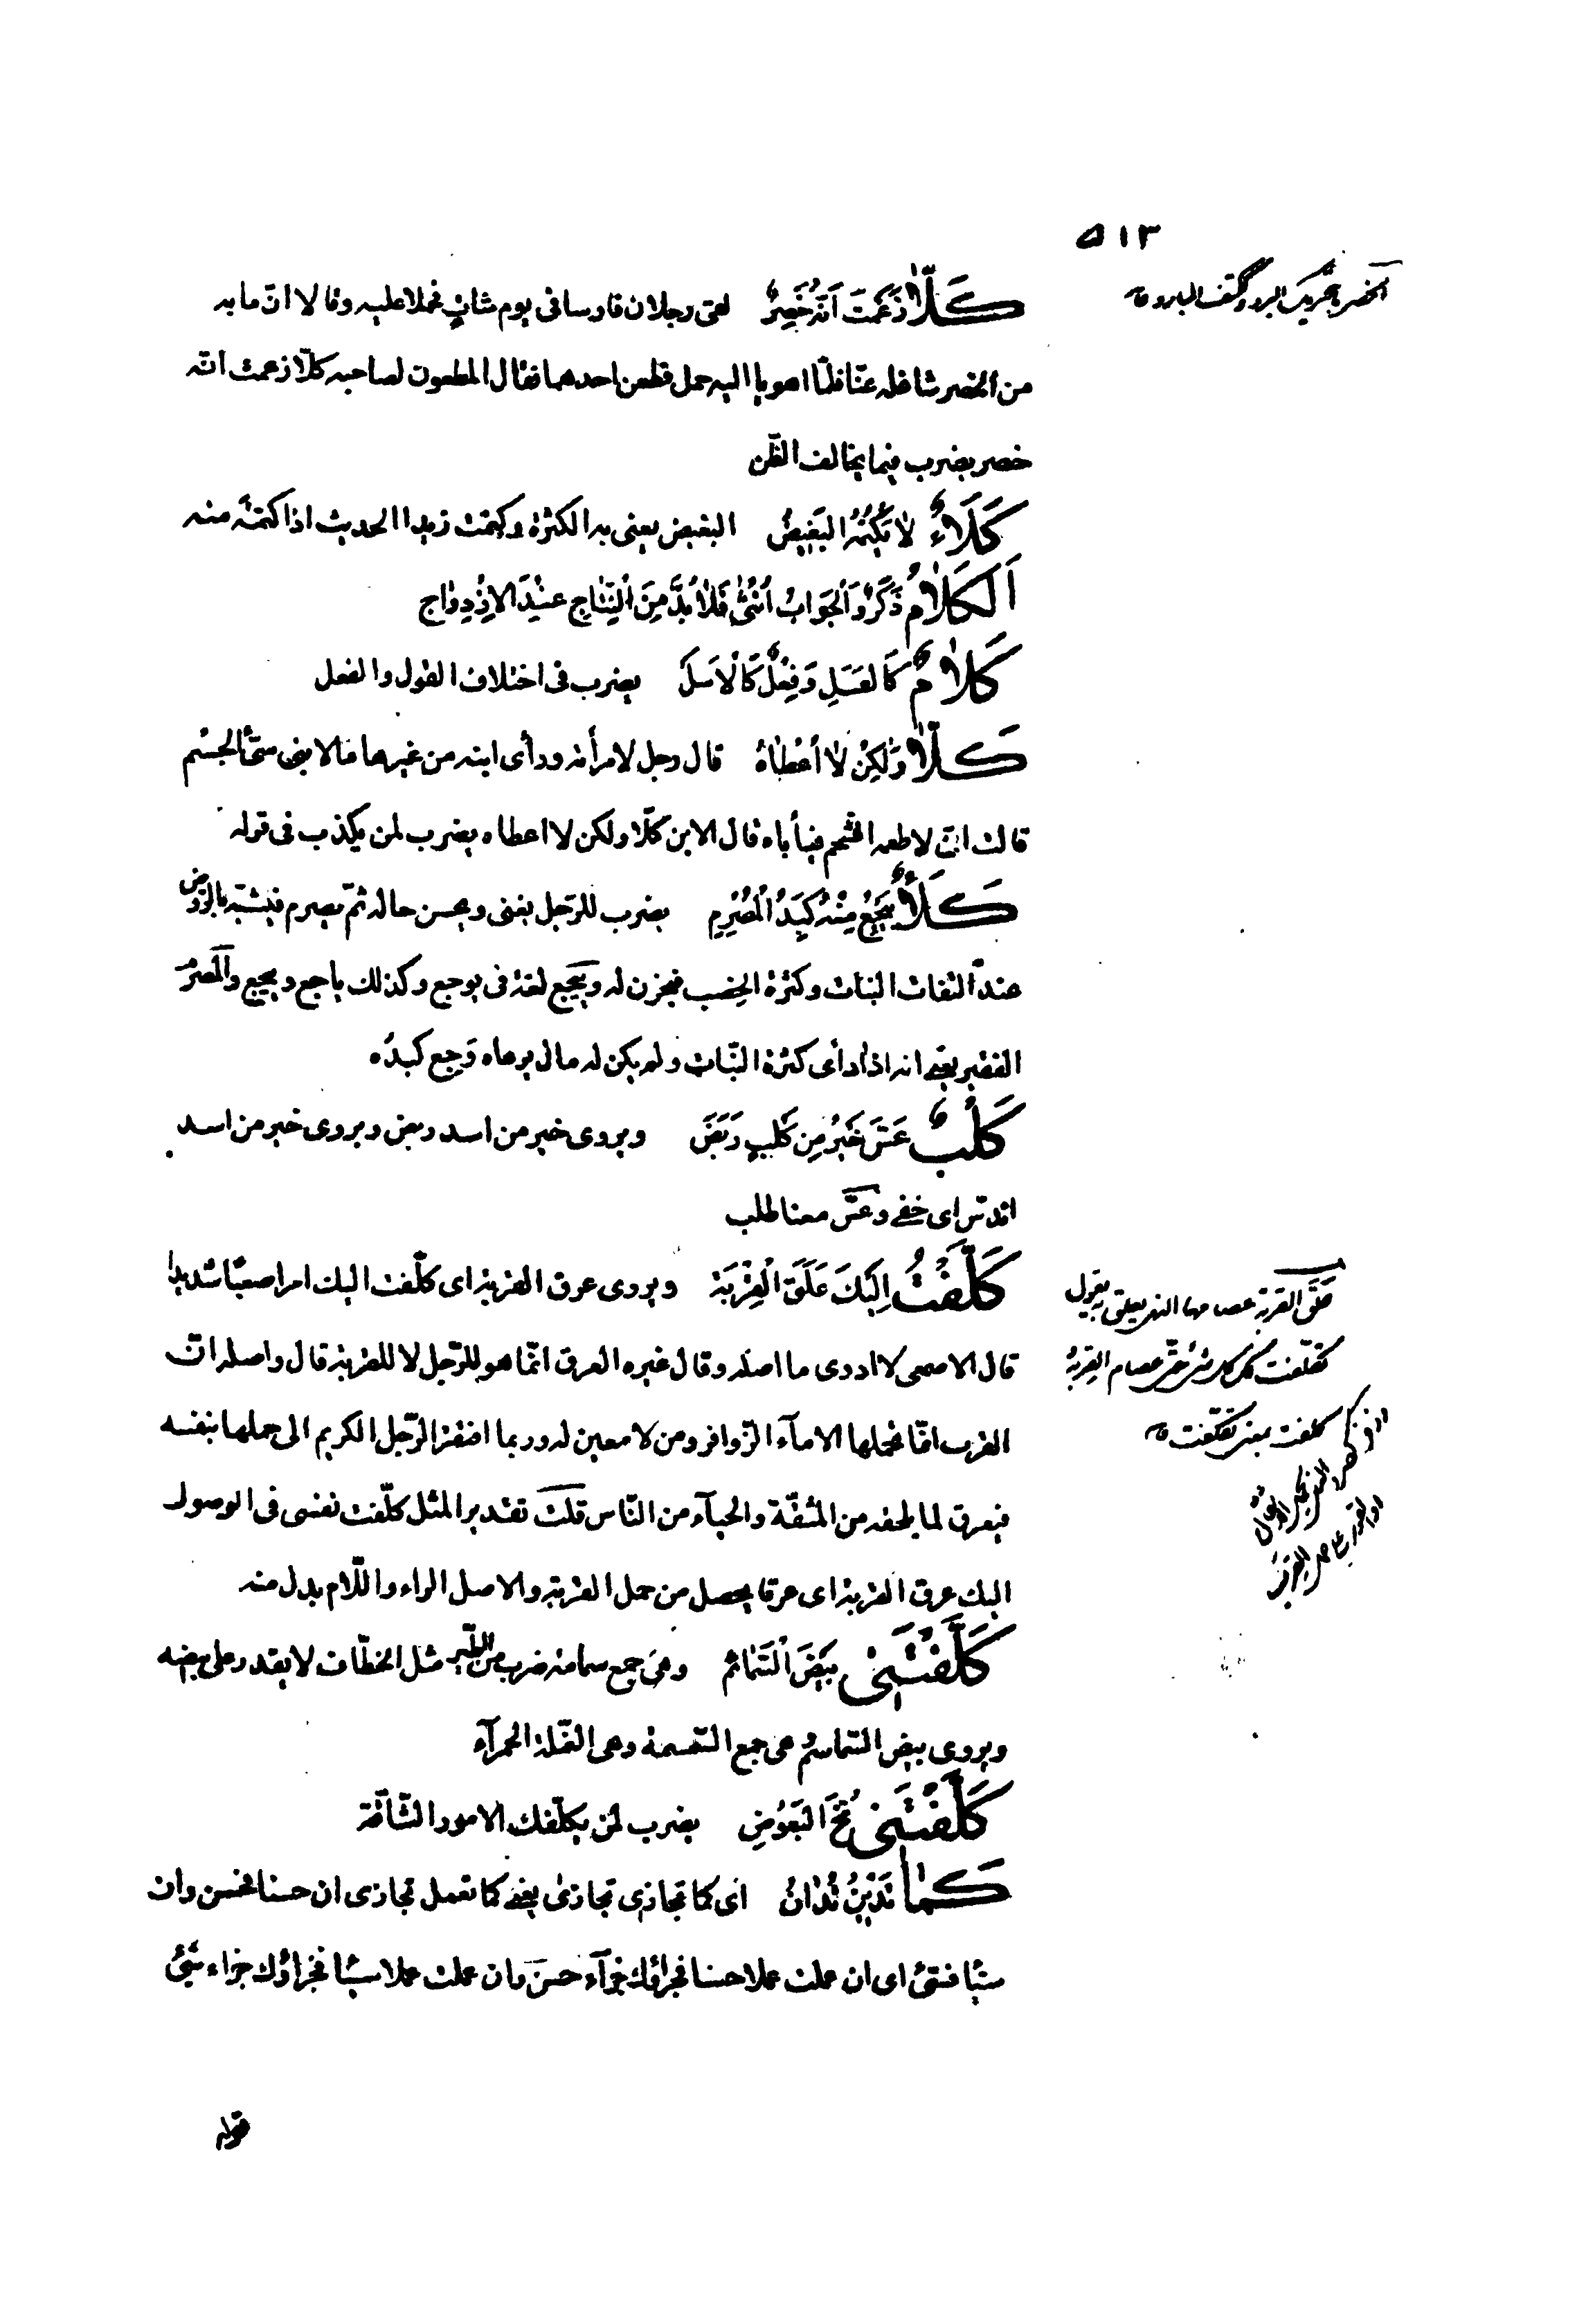 ٥١٣
الخصر بالتحريك البرد وككتف البارد ق
كَلّا زَعَمَتَ اَنَّهُ خَصِرٌ لقى رجلان فارسا فى يوم شاتٍ فحملا عليه وقالا انّ ما به
من الخصر شاغله عنّا فلمّا اهويا اليه حمل فطعن احدهما فقال المطعون لصاحبه كلّا زعمت انّه
خصر يضرب فيما يخالف الظّن
كَلَاءٌ لا يَكْتُمُهُ البَغِيضُ البغيض يعنى به الكثرة وكتمت زيدا الحديث اذا كتمته منه
اَلكَلامُ ذَكَرٌ وَالْجَوَابُ اُنْثىٰ فَلاٰ بُدَّ مِنَ النِّتاجِ عِنْدَ الاِزْدِواجِ
كَلامٌ كَالعَسَلِ وَفِعْلٌ كَالْاَسَلِ يضرب فى اختلاف القول والفعل
كَلّا وَلٰكِنْ لاٰ اُعْطاهُ قال رجل لامرأته ورأى ابنه من غيرها ما لابنى سيّئ الجسم
قالت انى لاطعمه الشّحم فيأباه قال الابن كلّا ولكن لا اعطاه يضرب لمن يكذب فى قوله
كَلَأٌ يَيْجَعُ مِنْهُ كَبِدُ الْمُصْرِمِ يضرب للرّجل يغنى ويحسن حاله ثمّ يصرم فيشبّه بالرّوض
عند التفات النبات وكثرة الخصب فيحزن له وييجع لغة فى يوجع وكذلك ياجع وييجع والمصرم
الفقير يعنى انه اذا رأى كثرة النّبات ولم يكن له مال يرعاه وَجِع كبدُه
كَلْبٌ عَسَّ خَيْرٌ مِن كَلْبٍ رَبَضَ ويروى خير من اسد ربض ويروى خير من اسد
اندسّ اى خفى وعسّ معناه طلب
كَلَّفْتُ اِلَيْكَ عَلَقَ الْقِرْبَةِ ويروى عرق القربة اى كلّفت اليك امرا صعبًا شديدا
قال الاصمعى لا ادرى ما اصله وقال غيره العرق انّما هو للرّجل لا للقربة قال واصله انّ
القرب انّما تحملها الامآء الزّوافر ومن لا معين له وربما افتقر الرّجل الكريم الى حملها بنفسه
فيعرق لما يلحقه من المشقّة والحيآء من النّاس قلت تقدير المثل كلّفت نفسى فى الوصول
اليك عرق القربة اى عرقا يحصل من حمل القربة والاصل الراء واللّام بدل منه
علق القربة عصامها الذى يعلق يقول
تكلّفت لك كل شئ حتّى عصام القربة
كلفت بمعنى تكلّفت ق
كَلَّفْتَنِى بَيْضَ السَّمائِمِ وهى جمع سمامة ضرب من الطّير مثل الخطّاف لا يقدر على بيضه
ويروى بيض السّماسم وهى جمع السّمسمة وهى النّملة الحمرآء
كَلَّفْتَنِى مُخَّ البَعُوضِ يضرب لمن يكلّفك الامور الشّاقّة
كَمٰا تَدِينُ تُدٰانُ اى كما تجازى تجازىٰ يعنى كما تعمل تجازى ان حسنا فحسن وان
سيّئا فسيّئ اى ان عملت عملا حسنا فجزاؤك جزآء حسن وان عملت عملا سيّئا فجزاؤك جزاء سيّئ
قوله